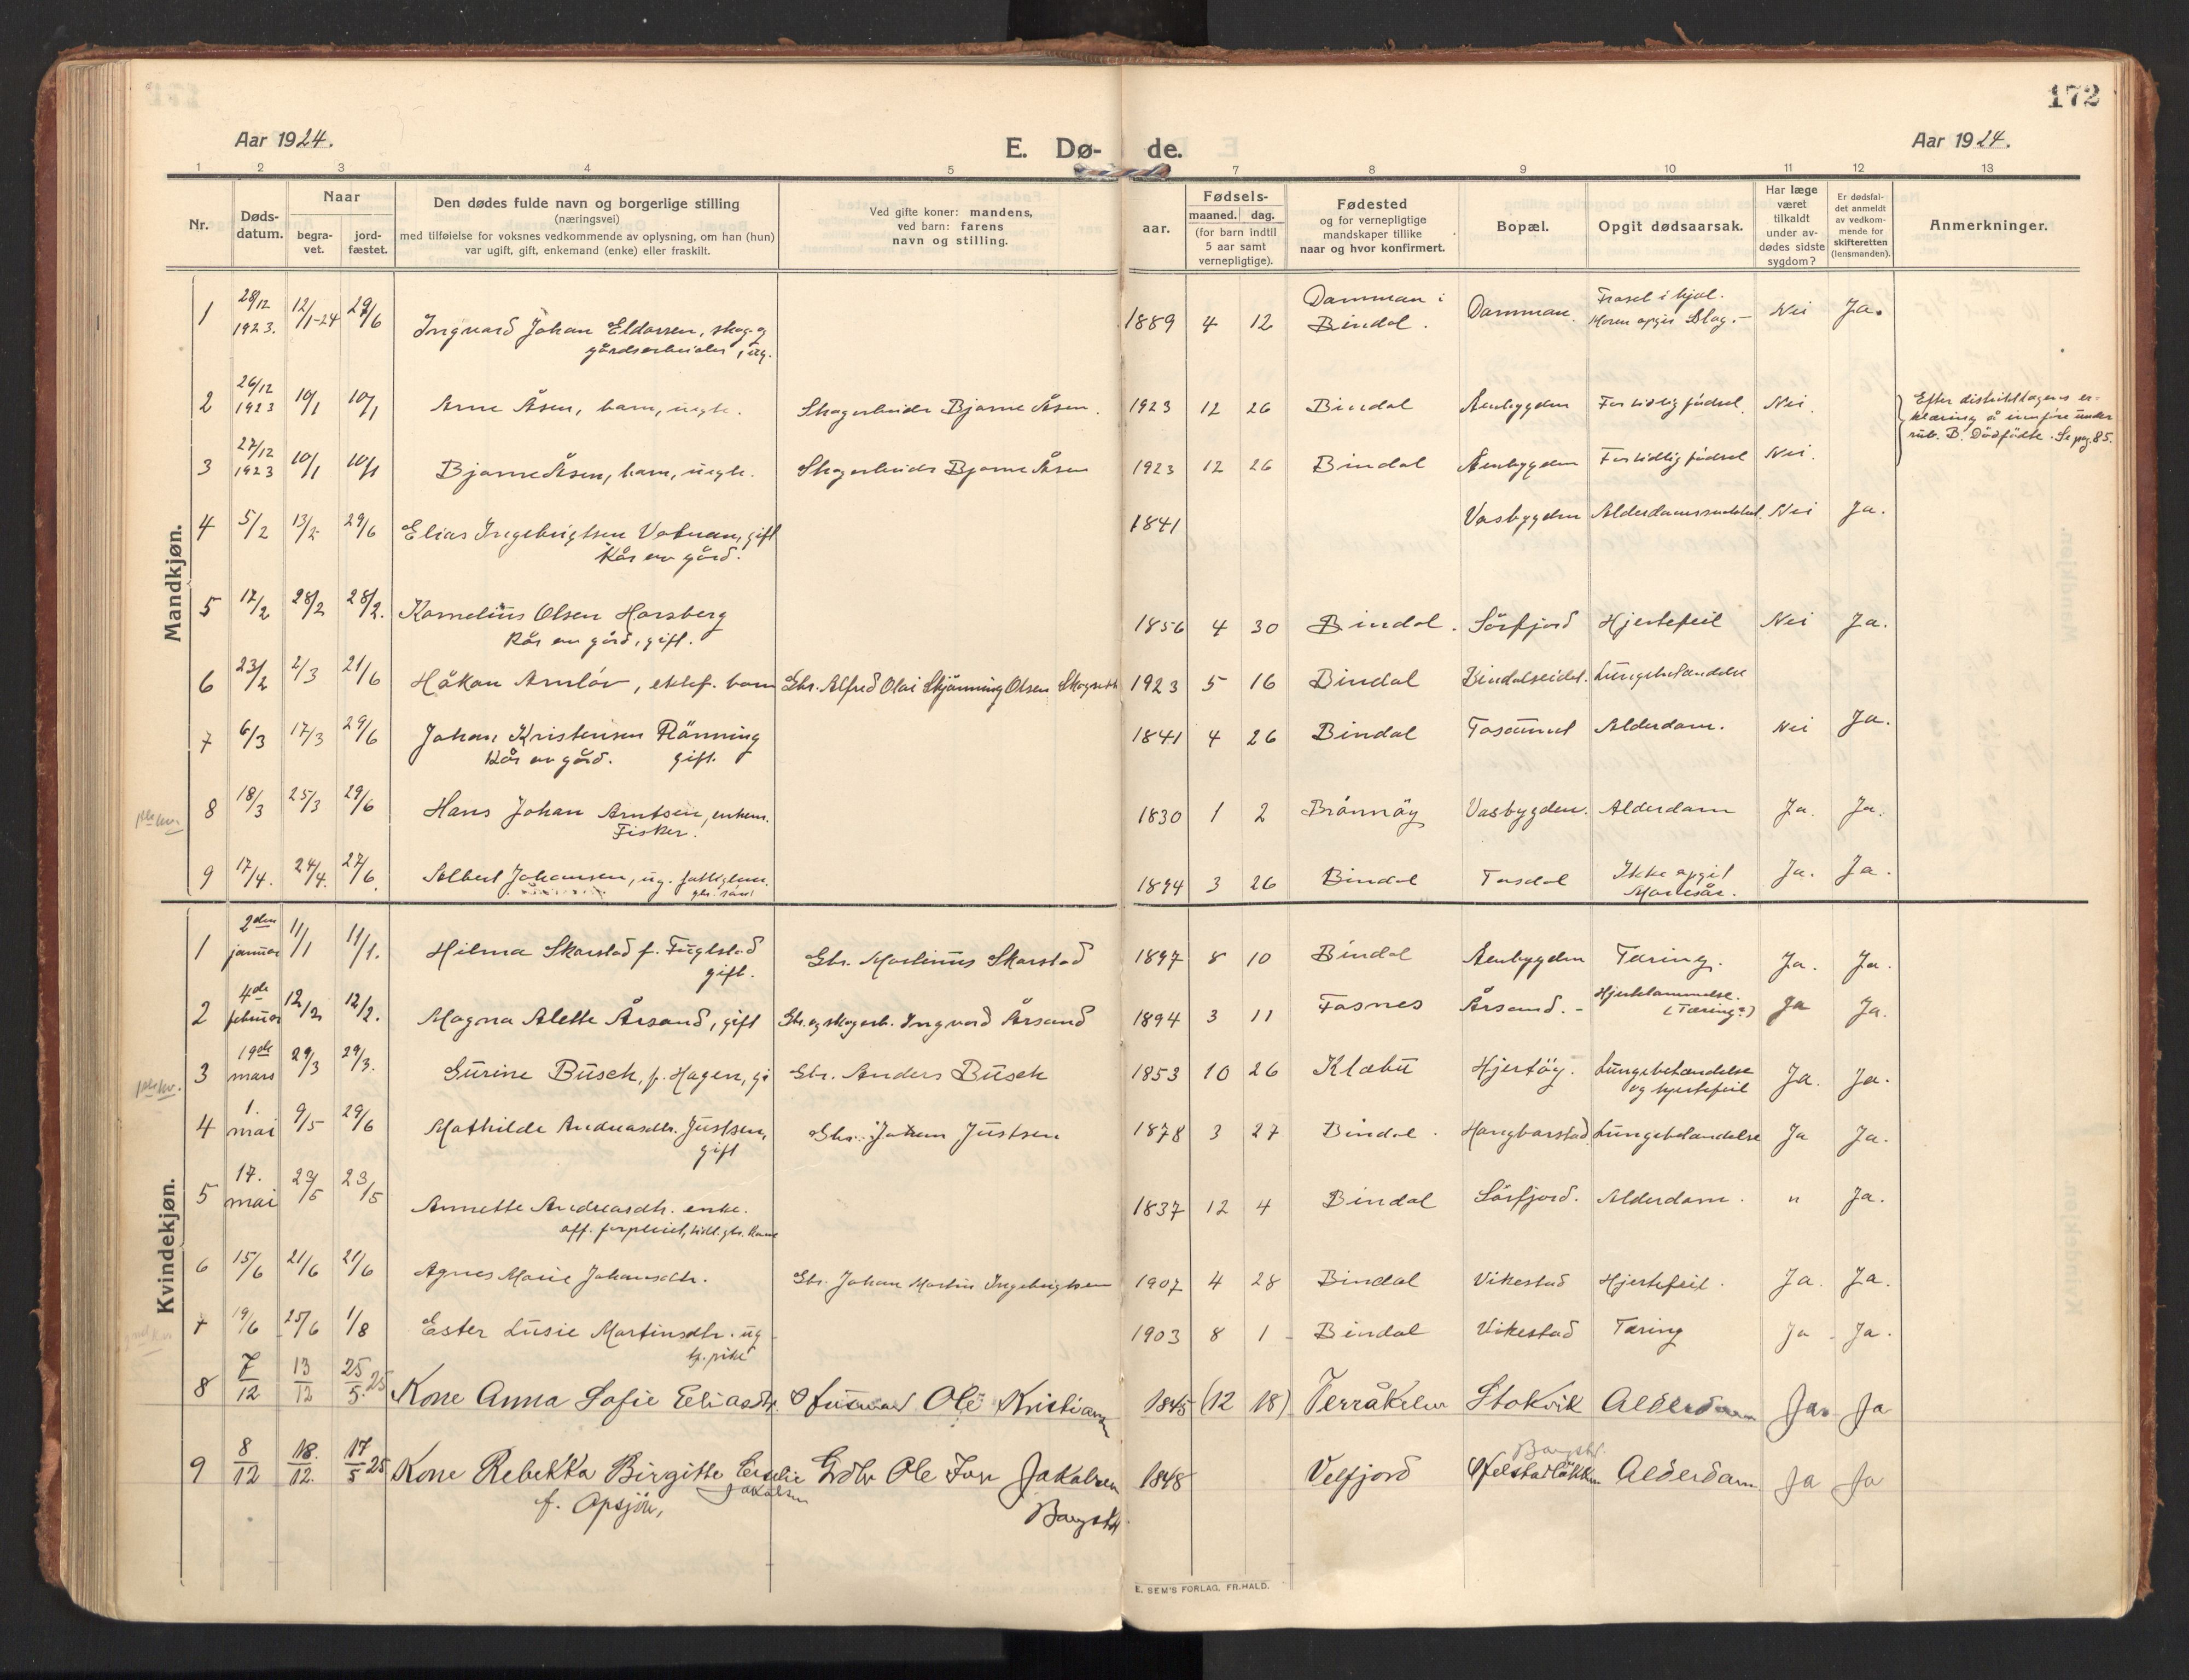 172
Aar 1924.
E. Dø- de.
Aar 1924.
1 2 3 4 5 7 8 9 10 11 12 13
Nr.
Døds-
datum.
Naar
begra-
vet.
jord-
fæstet.
Den dødes fulde navn og borgerlige stilling
(næringsvei)
med tilføielse for voksnes vedkommende av oplysning, om han (hun)
var ugift, gift, enkemand (enke) eller fraskilt.
Ved gifte koner: mandens,
ved barn: farens
navn og stilling.
aar.
Fødsels-
maaned. dag.
(for barn indtil
5 aar samt
vernepligtige).
Fødested
og for vernepligtige
mandskaper tillike
naar og hvor konfirmert.
Bopæl.
Opgit dødsaarsak.
Har læge
været
tilkaldt
under av-
dødes sidste
sygdom?
Er dødsfal-
det anmeldt
av vedkom-
mende for
skifteretten
(lensmanden).
Anmerkninger.
Mandkjøn.
1 28/12 1923. 12/1-24 29/6 Ingvard Johan Eldarsen, skog- og gårdsarbeider, ug. 1889 4 12 Damman i Bindal. Damman. Frosel i hjel. Moren opgir Slag.- Nei Ja.
2 26/12 1923 10/1 10/1 Arne Åsen, barn, uegte. Skogarbeider Bjarne Åsen. 1923 12 26 Bindal Åenbygden For tidlig fødsel. Nei.
Efter distriktlægens er-
klæring å innføre under
rub. B. Dødfødte. Se pag. 85.
3 27/12 1923 10/1 10/1 Bjarne Åsen, barn, uegte. Skogarbeider Bjarne Åsen 1923 12 26 Bindal Åenbygden For tidlig fødsel Nei.
4 5/2 13/2 29/6 Elias Ingebrigtsen Vatnan, gift Kår av gård. 1841 Vasbygden Alderdomssvakhet. Nei Ja.
5 17/2 28/2 28/2. Kornelius Olsen Horsberg kår av gård, gift. 1856 4 30 Bindal. Sørfjord Hjertefeil Nei Ja.
6 23/2 2/3 21/6 Håkon Arnløv, ektef. barn Gbr. Alfred Olai Skjønning Olsen 1923 5 16 Bindal Bindalseidet. Lungebetændelse
7 6/3 17/3 29/6 Johan Kristensen Rønning Kår av gård. gift. 1841 4 26 Bindal Tosaunet Alderdom. Nei Ja.
8 18/3 25/3 29/6 Hans Johan Arntsen, enkem. Fisker. 1830 1 2 Brønnøy Vasbygden. Alderdom Ja. Ja.
9 17/4. 24/4. 27/6. Albert Johansen, ug. 1894 3 26 Bindal Tosdal Ikke opgit Ja. Ja.
Kvindekjøn.
1 2den januar 11/1 11/1. Hilma Skarstad f. Fuglstad gift. Gbr. Martinus Skarstad 1897 8 10 Bindal Åenbygden Tæring. Ja. Ja.
2 4de februar 12/2 12/2. Magna Alette Årsand, gift Gbr. og skogarb. Ingvard Årsand 1894 3 11 Fosnes Årsand.- Hjertelammelse. (Tæring?) Ja Ja.
3 19de mars 29/3 29/3. Gurine Busch, f. Hagen, gi Gbr. Anders Busch 1853 10 26 Klæbu Hjertøy. Lungebetændelse og hjertefeil Ja. Ja.
4 1. mai 9/5 29/6 Mathilde Andreasdtr. Justsen, gift Gbr. Johan Justsen 1878 3 27 Bindal. Hangbarstad. Lungebetændelse Ja Ja.
5 17. mai 23/5 23/5 Annette Andreasdtr. enke. off. forpleiet, tidl. gbr. kone 1837 12 4 Bindal Sørfjord. Alderdom. " Ja.
6 15/6 21/6 21/6 Agnes Marie Johansdtr. Gbr. Johan Martin Ingebrigtsen 1907 4 28 Bindal Vikestad Hjertefeil. Ja. Ja.
7 19/6 25/6 1/8 Ester Lusie Martinsdtr. ug tj. pike 1903 8 1 Bindal Vikestad Tæring Ja Ja.
8 7/12 13/12 25/5.25 Kone Anna Sofie Eliasdtr. Husmand Ole Kristiansen 1845 (12 18) Terråkelv Stokvik Alderdom Ja Ja
9 8/12 18./12. 17/5 25 Kone Rebekka Birgitte Emilie Jakobsen f. Opsjøn, Grdbr Ole Jakobsen Bangstad 1848 Velfjord Bangstd. Alderdom Ja Ja
E. SEM'S FORLAG, FR.HALD.